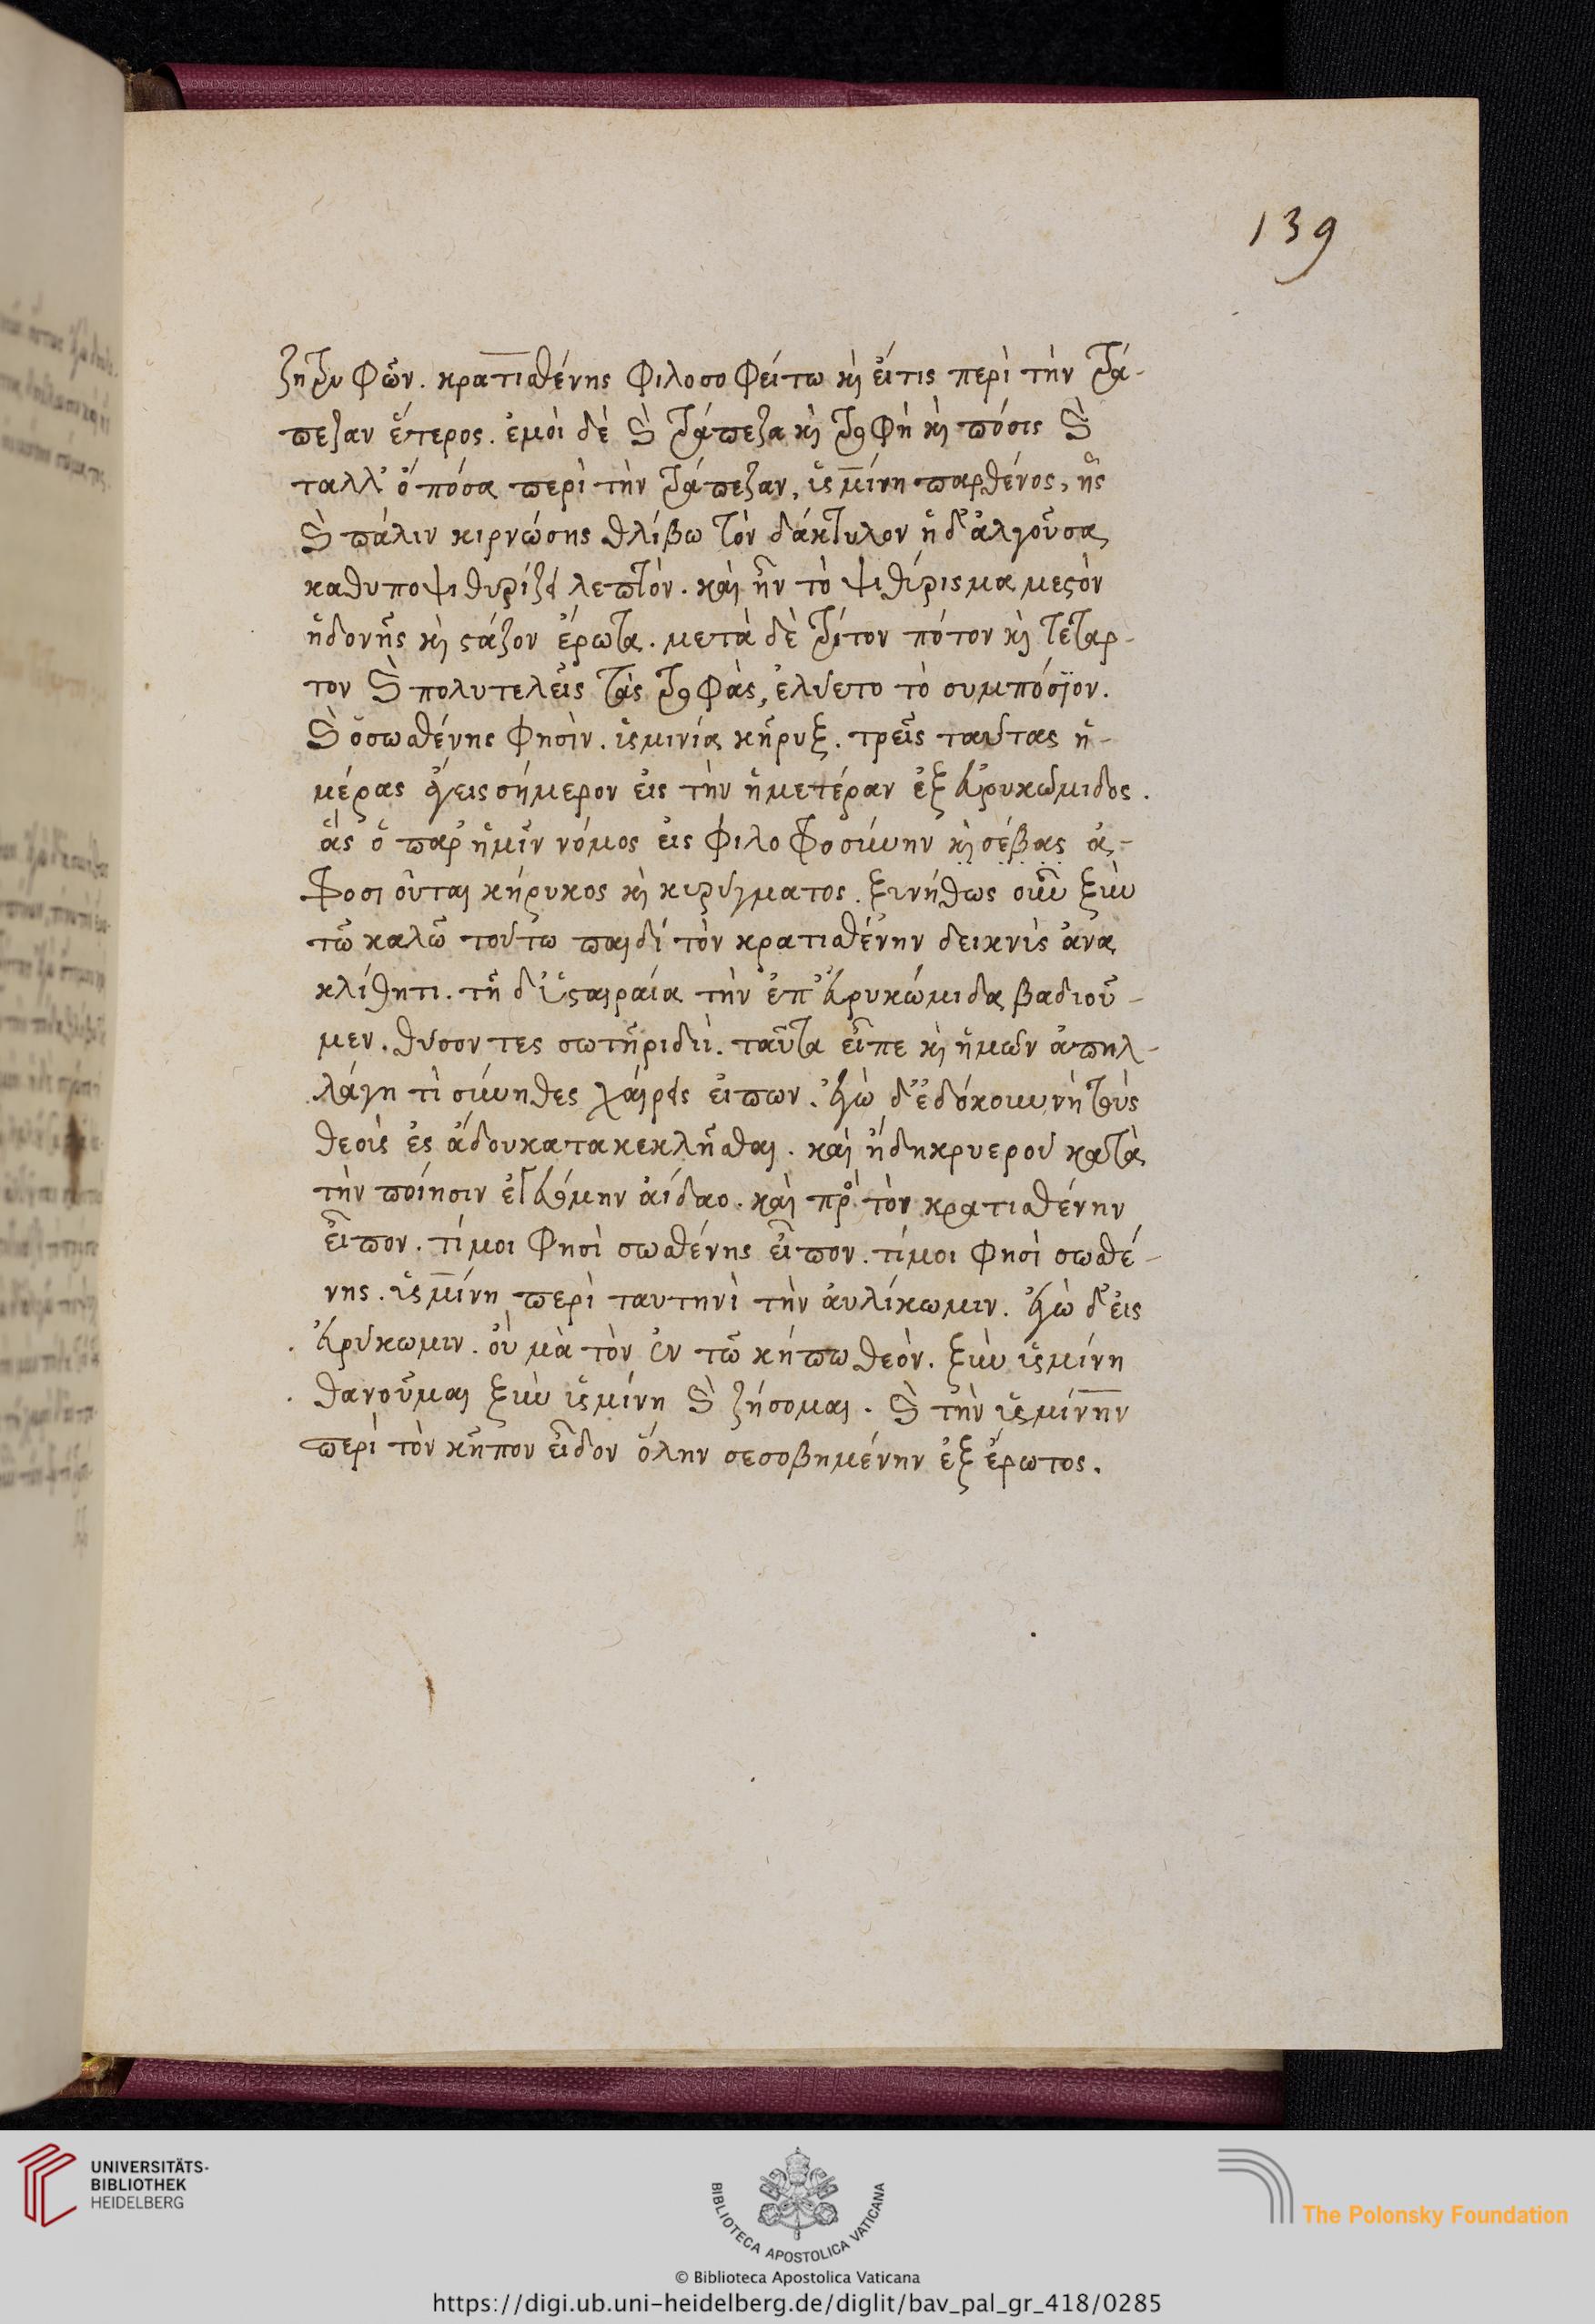 139
ζητρυφῶν. κρατισθένης φιλοσοφείτω κὶ εἴτις περὶ τὴν τρά-
πεζαν ἕτερος. ἐμοὶ δὲ καὶ τράπεζα κὶ τροφὴ κὶ πόσις καὶ
ταλλ' ὁπόσα περὶ τὴν τράπεζαν, ἰσμίνη παρθένος, ἧς
καὶ πάλιν κιρνώσης θλίβω τὸν δάκτυλον ἡ δ' ἀλγοῦσα
καθυποψιθυρίζει λεπτόν. καὶ ἦν τὸ ψιθύρισμα μεστὸν
ἡδονῆς κὶ στάζον ἔρωτα. μετὰ δὲ τρίτον πότον κὶ τέταρ-
τον καὶ πολυτελεῖς τὰς τροφὰς, ἐλύετο τὸ συμπόσϊον.
καὶ ὁ σωσθένης φησὶν. ὑσμινία κῆρυξ. τρεῖς ταύτας ἡ-
μέρας ἄγεις σήμερον εἰς τὴν ἡμετέραν ἐξ εὐρυκώμιδος.
ἃς ὁ παρ' ἡμῖν νόμος εἰς φιλοφροσύνην κὶ σέβας ἀ-
φροσιοῦται κήρυκος κὶ κυρύγματος. ξυνήθως οὖν ξὺν
τῶ καλῶ τούτω παιδί τὸν κρατισθένην δεικνὺς ἀνα
κλίθητι. τῆ δ' ὑσταιραία τὴν ἐπ' εὐρυκώμιδα βαδιοῦ-
μεν. θύσοντες σωτῆρι διὶ. ταῦτα εἶπε κὶ ἡμῶν ἀπηλ-
λάγη τὶ σύνηθες χαίρεις εἰπων. ἐγὼ δ' ἐδόκουν νὴ τοὺς
θεοὺς ἐς ἅδου κατακεκλῆσθαι. καὶ ἤδη κρυεροῦ κατὰ
τὴν ποίησιν ἐγευόμην ἀίδαο. καὶ πρὸς τὸν κρατισθένην
εἶπον. τί μοι φησὶ σωσθένης εἶπον. τί μοι φησὶ σωσθέ-
νης. ἰσμίνη περὶ ταυτηνὶ τὴν ἀυλίκωμιν. ἐγὼ δ' εἰς
εὐρύκωμιν. οὐ μὰ τὸν ἐν τῶ κήπω θεὸν. ξὺν ὑσμίνη
θανοῦμαι ξὺν ὑσμίνη καὶ ζήσομαι. καὶ τὴν ὑσμίνην
περὶ τὸν κῆπον εἶδον ὅλην σεσοβημένην ἐξ ἔρωτος.
UNIVERSITÄTS-
BIBLIOTHEK
HEIDELBERG
BIBLIOTECA APOSTOLICA VATICANA
The Polonsky Foundation
© Biblioteca Apostolica Vaticana
https://digi.ub.uni-heidelberg.de/diglit/bav_pal_gr_418/0285